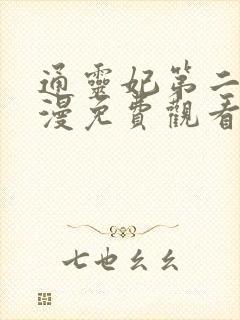 通靈妃第二
漫免費觀看
七也幺幺